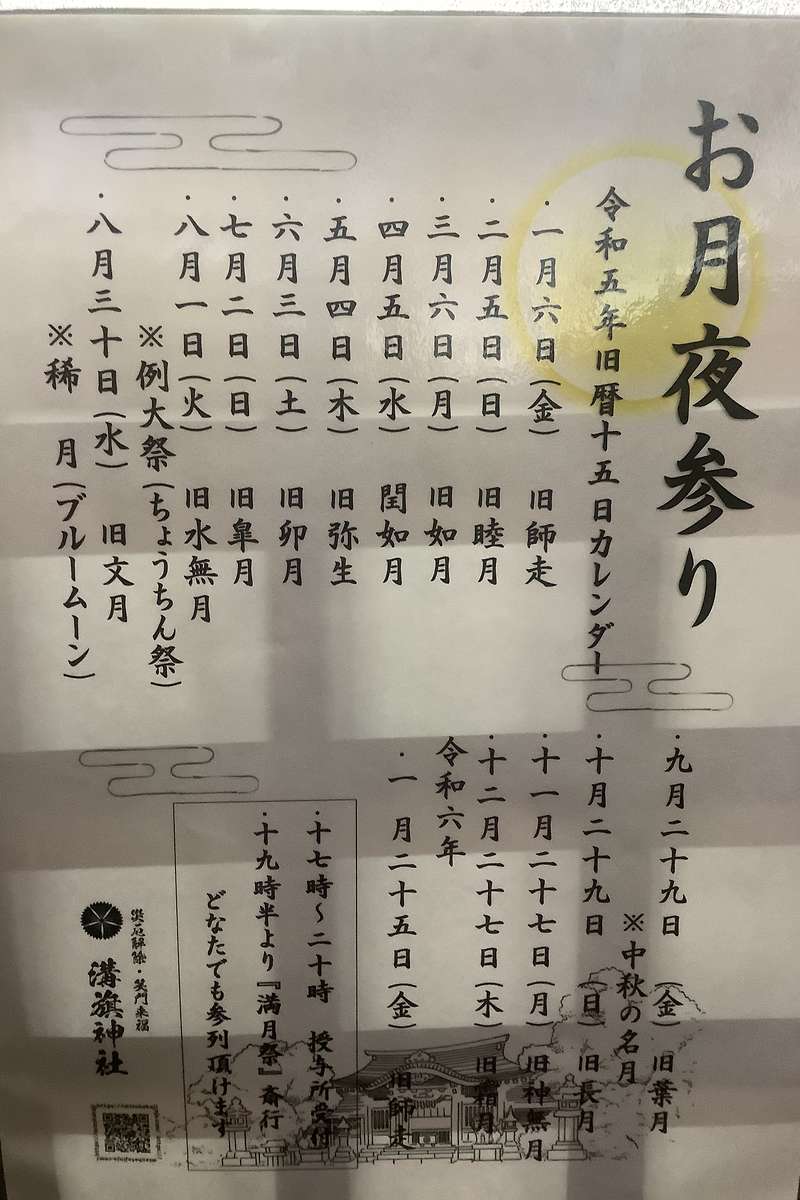 お月夜参り
令和五年旧暦十五日カレンダー
・一月六日(金) 旧師走
・二月五日(日) 旧睦月
・三月六日(月) 旧如月
・四月五日(水) 閏如月
・五月四日(木) 旧弥生
・六月三日(土) 旧卯月
・七月二日(日) 旧皐月
・八月一日(火) 旧水無月
※例大祭(ちょうちん祭)
・八月三十日(水) 旧文月
※稀 月(ブルームーン)
・九月二十九日 (金) 旧葉月
※中秋の名月
・十月二十九日 (日) 旧長月
・十一月二十七日(月) 旧神無月
・十二月二十七日(木) 旧霜月
令和六年
・一 月二十五日(金) 旧師走
・十七時～二十時 授与所受付
・十九時半より『満月祭』斎行
どなたでも参列頂けます
災厄解除・笑門来福
溝旗神社